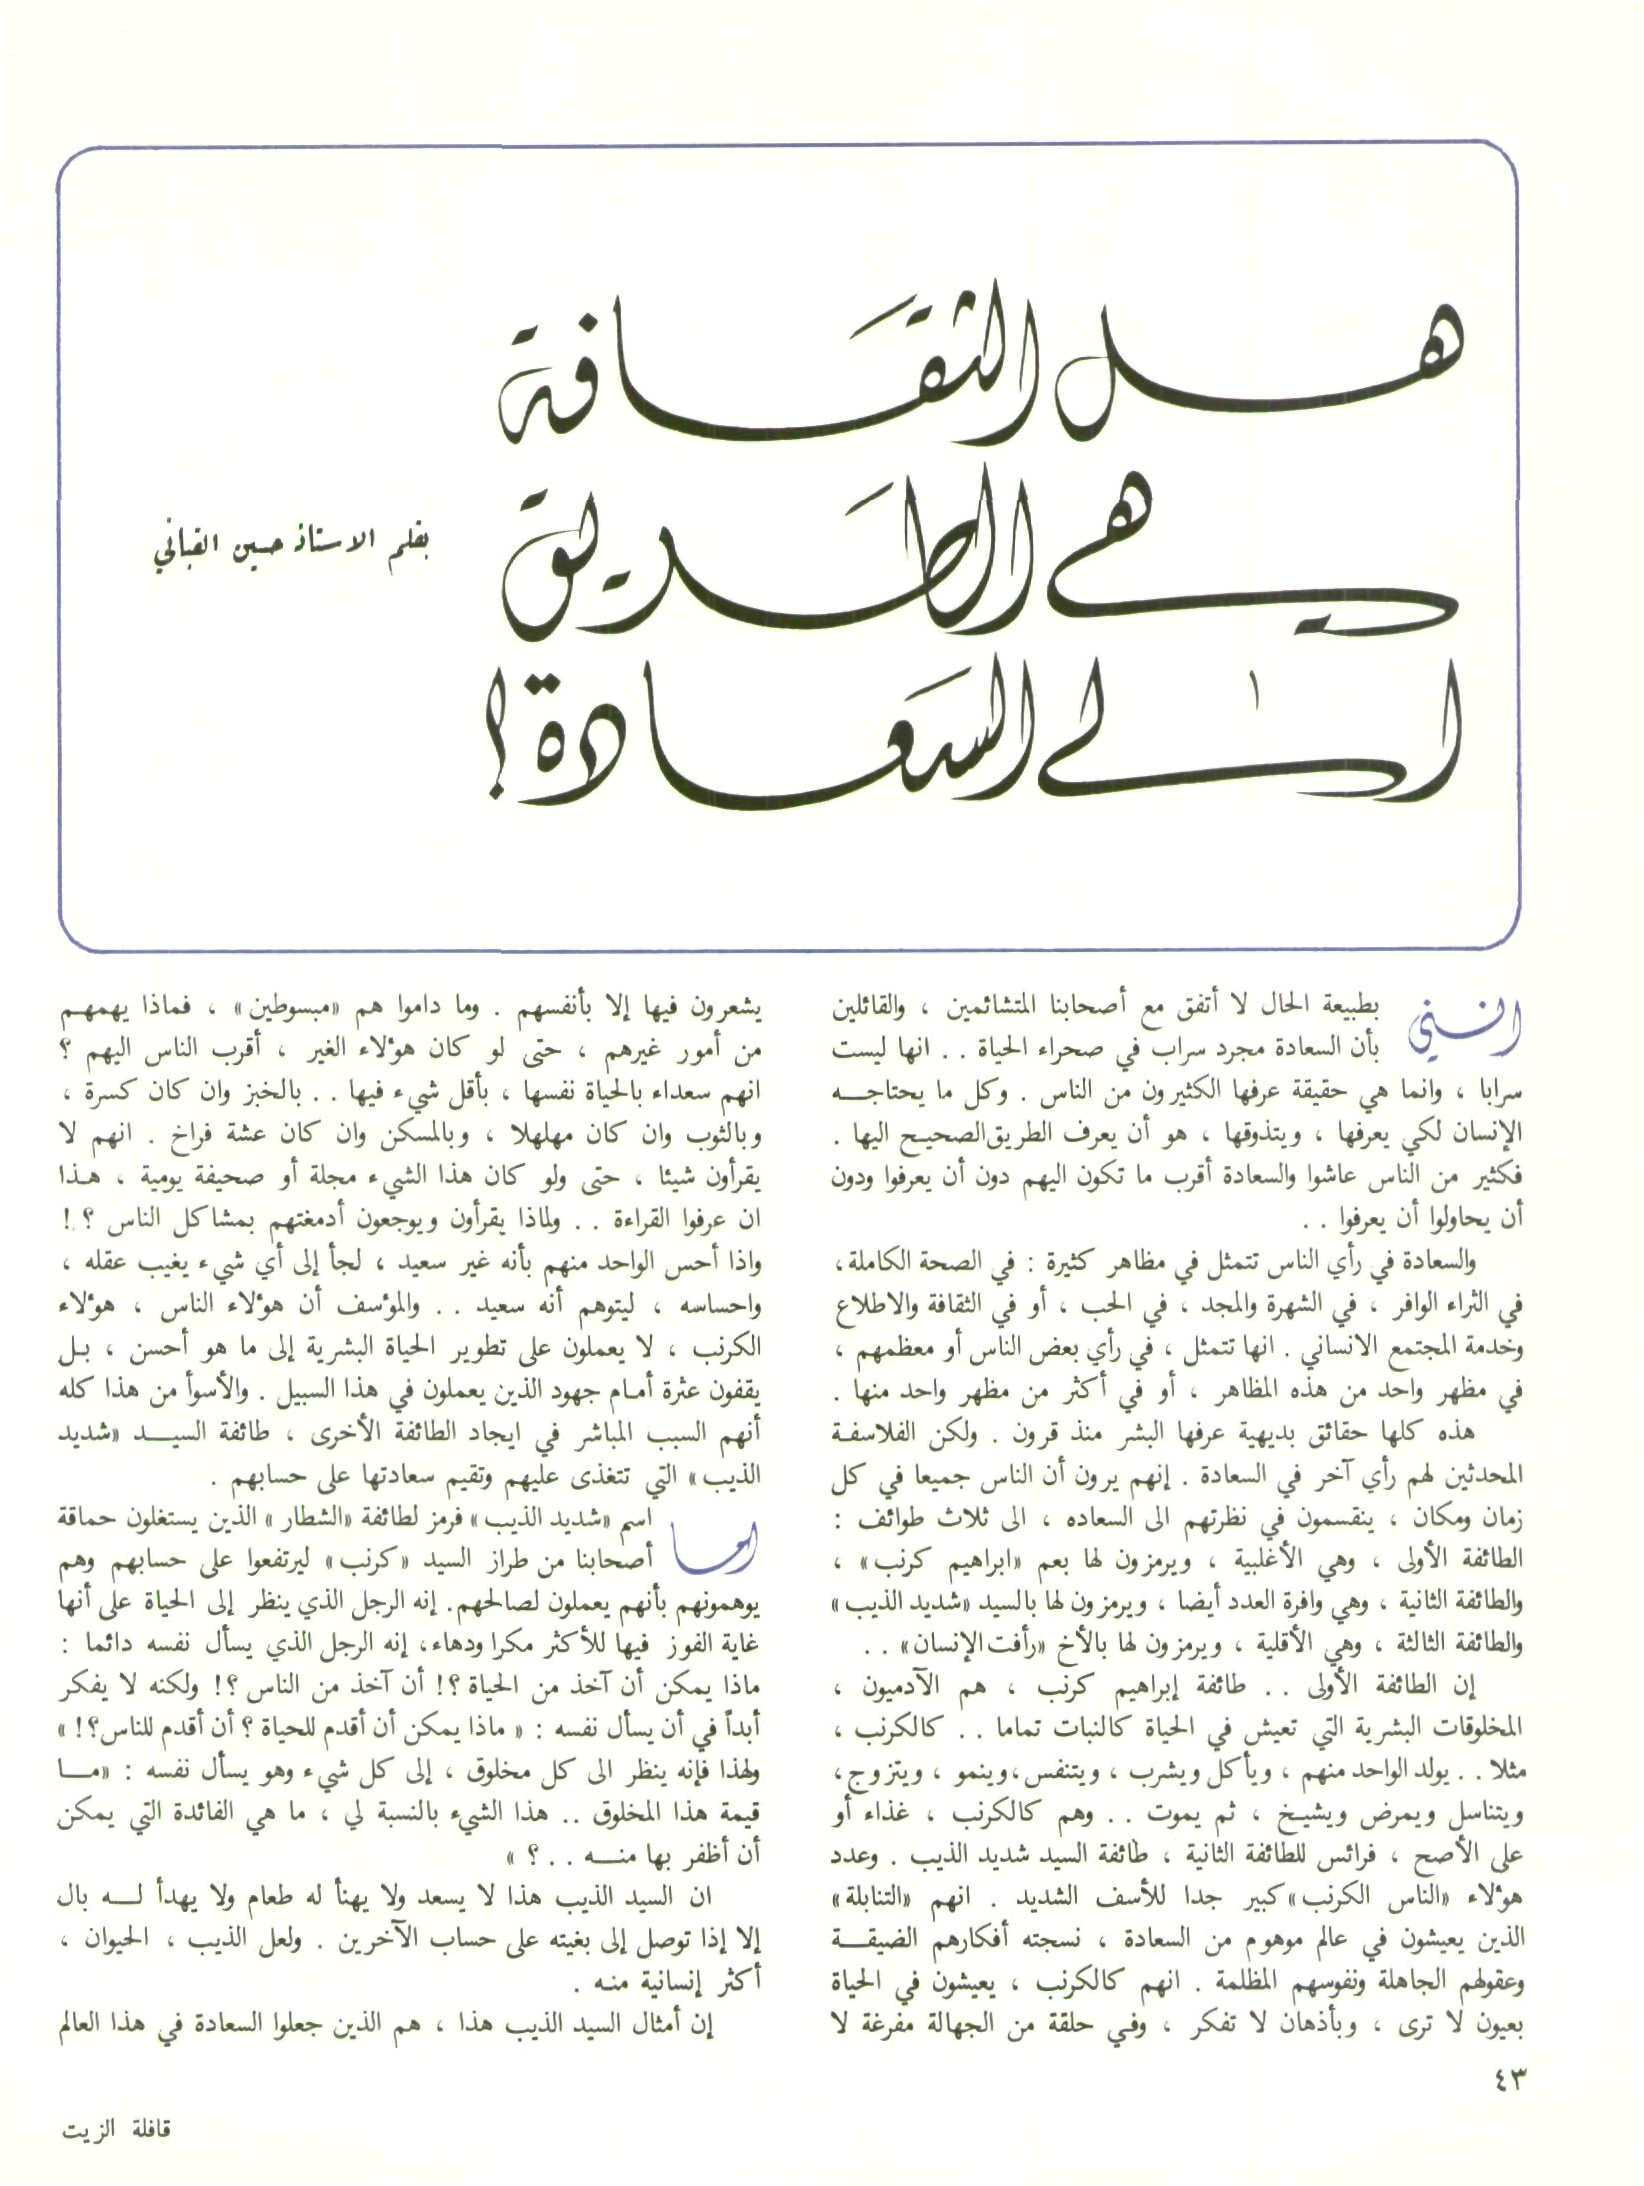 هل الثقافة
هي الطريق
الى السعادة؟
بقلم الاستاذ حسين القباني
انني بطبيعة الحال لا أتفق مع أصحابنا المتشائمين ، والقائلين
بأن السعادة مجرد سراب في صحراء الحياة . . انها ليست
سرابا ، وانما هي حقيقة عرفها الكثيرون من الناس . وكل ما يحتاجه
الإنسان لكي يعرفها ، ويتذوقها ، هو أن يعرف الطريق الصحيح اليها .
فكثير من الناس عاشوا والسعادة أقرب ما تكون اليهم دون أن يعرفوا ودون
أن يحاولوا أن يعرفوا . .
والسعادة في رأي الناس تتمثل في مظاهر كثيرة : في الصحة الكاملة ،
في الثراء الوافر ، في الشهرة والمجد ، في الحب ، أو في الثقافة والاطلاع
وخدمة المجتمع الانساني . انها تتمثل ، في رأي بعض الناس أو معظمهم ،
في مظهر واحد من هذه المظاهر ، أو في أكثر من مظهر واحد منها .
هذه كلها حقائق بديهية عرفها البشر منذ قرون . ولكن الفلاسفة
المحدثين لهم رأي آخر في السعادة . إنهم يرون أن الناس جميعا في كل
زمان ومكان ، ينقسمون في نظرتهم الى السعاده ، الى ثلاث طوائف :
الطائفة الأولى ، وهي الأغلبية ، ويرمزون لها بعم «ابراهيم كرنب» ،
والطائفة الثانية ، وهي وافرة العدد أيضا ، ويرمزون لها بالسيد «شديد الذيب»
والطائفة الثالثة ، وهي الأقلية ، ويرمزون لها بالأخ «رأفت الإنسان» . .
إن الطائفة الأولى . . طائفة إبراهيم كرنب ، هم الآدميون ،
المخلوقات البشرية التي تعيش في الحياة كالنبات تماما . . كالكرنب ،
مثلا . . يولد الواحد منهم ، ويأكل ويشرب ، ويتنفس ،وينمو ، ويتزوج ،
ويتناسل ويمرض ويشيخ ، ثم يموت . . وهم كالكرنب ، غذاء أو
على الأصح ، فرائس للطائفة الثانية ، طائفة السيد شديد الذيب . وعدد
هؤلاء «الناس الكرنب» كبير جدا للأسف الشديد . انهم «التنابلة»
الذين يعيشون في عالم موهوم من السعادة ، نسجته أفكارهم الضيقة
وعقولهم الجاهلة ونفوسهم المظلمة . انهم كالكرنب ، يعيشون في الحياة
بعيون لا ترى ، وبأذهان لا تفكر ، وفي حلقة من الجهالة مفرغة لا
يشعرون فيها إلا بأنفسهم . وما داموا هم «مبسوطين» ، فماذا يهمهم
من أمور غيرهم ، حتى لو كان هؤلاء الغير ، أقرب الناس اليهم ؟
انهم سعداء بالحياة نفسها ، بأقل شيء فيها . . بالخبز وان كان كسرة ،
وبالثوب وان كان مهلهلا ، وبالمسكن وان كان عشة فراخ . انهم لا
يقرأون شيئا ، حتى ولو كان هذا الشيء مجلة أو صحيفة يومية ، هذا
ان عرفوا القراءة . . ولماذا يقرأون ويوجعون أدمغتهم بمشاكل الناس ؟ !
واذا أحس الواحد منهم بأنه غير سعيد ، لجأ إلى أي شيء يغيب عقله ،
واحساسه ، ليتوهم أنه سعيد . . والمؤسف أن هؤلاء الناس ، هؤلاء
الكرنب ، لا يعملون على تطوير الحياة البشرية إلى ما هو أحسن ، بل
يقفون عثرة أمام جهود الذين يعملون في هذا السبيل . والأسوأ من هذا كله
أنهم السبب المباشر في ايجاد الطائفة الأخرى ، طائفة السيد «شديد
الذيب» التي تتغذى عليهم وتقيم سعادتها على حسابهم .
اما اسم «شديد الذيب» فرمز لطائفة «الشطار» الذين يستغلون حماقة
أصحابنا من طراز السيد «كرنب» ليرتفعوا على حسابهم وهم
يوهمونهم بأنهم يعملون لصالحهم. إنه الرجل الذي ينظر إلى الحياة على أنها
غاية الفوز فيها للأكثر مكرا ودهاء، إنه الرجل الذي يسأل نفسه دائما :
ماذا يمكن أن آخذ من الحياة ؟! أن آخذ من الناس ؟! ولكنه لا يفكر
أبداً في أن يسأل نفسه : « ماذا يمكن أن أقدم للحياة ؟ أن أقدم للناس؟! »
ولهذا فإنه ينظر الى كل مخلوق ، إلى كل شيء وهو يسأل نفسه : «ما
قيمة هذا المخلوق .. هذا الشيء بالنسبة لي ، ما هي الفائدة التي يمكن
أن أظفر بها منه . . ؟ »
ان السيد الذيب هذا لا يسعد ولا يهنأ له طعام ولا يهدأ له بال
إلا إذا توصل إلى بغيته على حساب الآخرين . ولعل الذيب ، الحيوان ،
أكثر إنسانية منه .
إن أمثال السيد الذيب هذا ، هم الذين جعلوا السعادة في هذا العالم
٤٣
قافلة الزيت